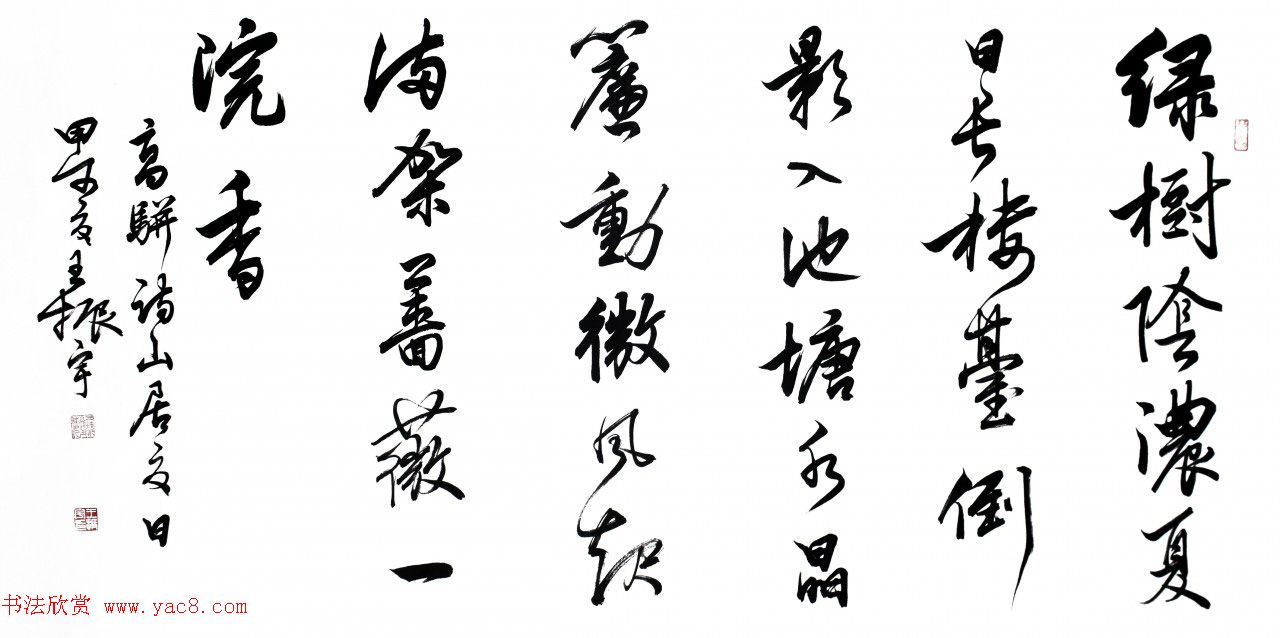 绿樹陰濃夏
日長楼臺倒
影入池塘水晶
簾動微風起
满架薔薇一
院香
高駢诗山居夏日
甲午夏王振宇
书法欣赏 www.yac8.com